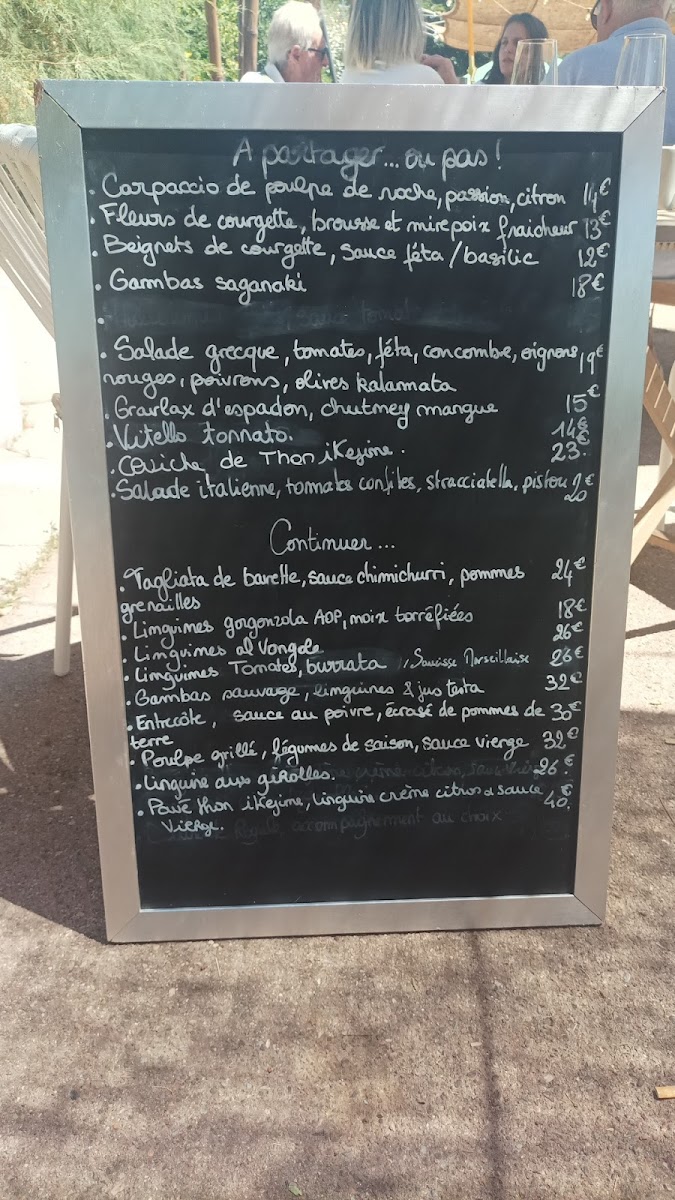 A partager... ou pas !
• Carpaccio de poulpe de roche, passion, citron 14€
• Fleurs de courgette, brousse et mirepoix fraicheur 13€
• Beignets de courgette, sauce féta / basilic 12€
• Gambas saganaki 18€
•
• Salade grecque, tomates, féta, concombre, oignons 19€
rouges, poivrons, olives kalamata
• Gravlax d'espadon, chutney mangue 15€
• Vitello tonnato. 14€
• Céviche de Thon iKejime. 23€
• Salade italienne, tomates confites, stracciatella, pistou 20€
Continuer...
• Tagliata de bavette, sauce chimichurri, pommes 24€
grenailles
• Linguines gorgonzola AOP, noix torréfiées 18€
• Linguines al Vongole 26€
• Linguines Tomates, burrata, Saucisse Marseillaise 26€
• Gambas sauvage, linguines & jus testa 32€
• Entrecôte, sauce au poivre, écrasé de pommes de 30€
terre
• Poulpe grillé, légumes de saison, sauce vierge 32€
• Linguine aux girolles. 26€
• Pavé thon iKejime, linguine crème citron & sauce 40€
Vierge.
accompagnement au choix